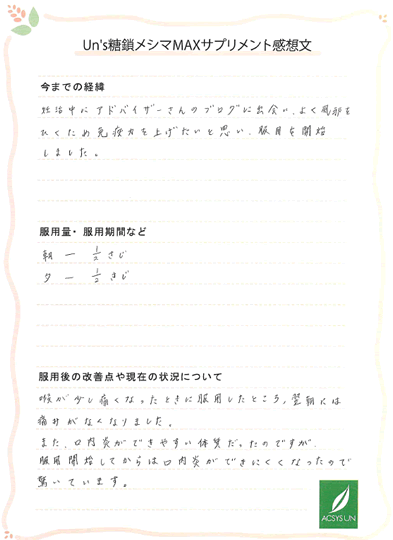 Un's糖鎖メシマMAXサプリメント感想文
今までの経緯
妊活中にアドバイザーさんのブログに出会い、よく風邪を
ひくため免疫力を上げたいと思い、服用を開始
しました。
服用量・服用期間など
朝 ー 1/2 さじ
夕 ー 1/2 さじ
服用後の改善点や現在の状況について
喉が少し痛くなったときに服用したところ、翌朝には
痛みがなくなりました。
また、口内炎ができやすい体質だったのですが、
服用開始してからは口内炎ができにくくなったので
驚いています。
ACSYSUN